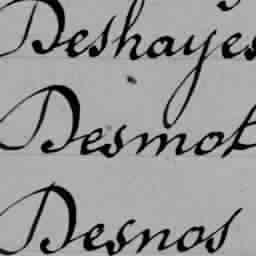 Deshayes
Desmot
Desnos